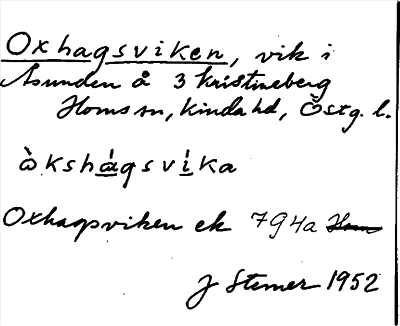 Oxhagsviken, vik i
Åsunden å 3 Kristineberg
Horns sn, Kinda hd, Östg. l.
òkshágsvíka
Oxhagsviken ek 794a
J Stemer 1952